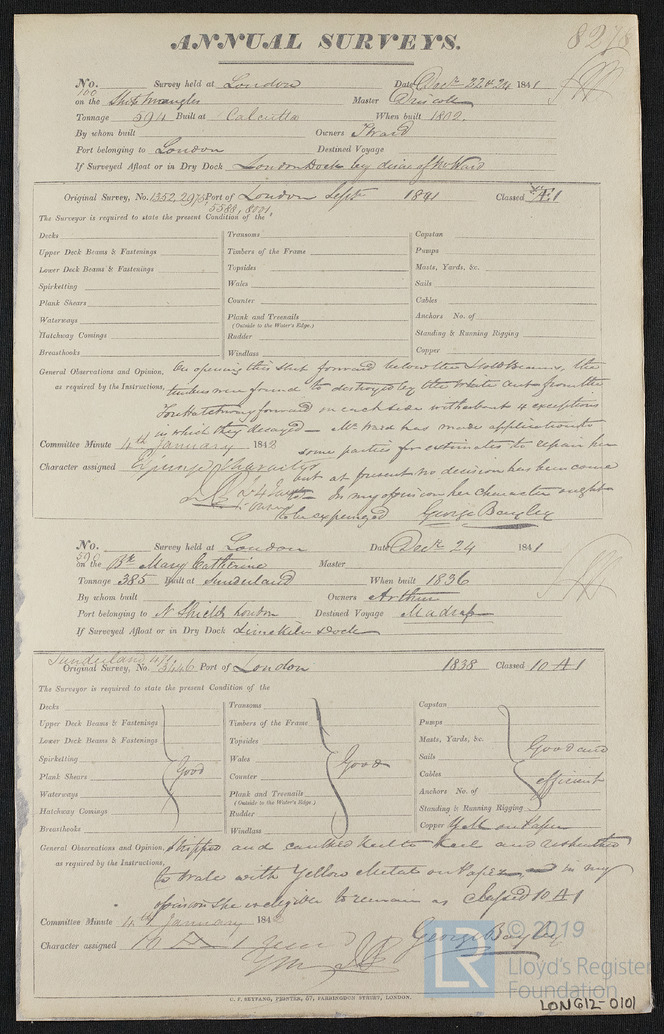 8278
ANNUAL SURVEYS.
No. 100 Survey held at London Date Decr 22 & 24 1841
on the Ship Master Driscoll
Tonnage 594 Built at Calcutta When built 1802.
By whom built Owners Ward
Port belonging to London Destined Voyage
If Surveyed Afloat or in Dry Dock London Dock by desire of Mr Ward
Original Survey, No. 1352, 2975, Port of London Septr 1841 Classed Æ 1
5588, 8001.
The Surveyor is required to state the present Condition of the
Decks Transoms Capstan
Upper Deck Beams & Fastenings Timbers of the Frame Pumps
Lower Deck Beams & Fastenings Topsides Masts, Yards, &c.
Spirketting Wales Sails
Plank Shears Counter Cables
Waterways Plank and Treenails Anchors No. of
(Outside to the Water's Edge.)
Hatchway Comings Rudder Standing & Running Rigging
Breasthooks Windlass Copper
General Observations and Opinion, On opening this Ship forward below the Hold Beams, the
as required by the Instructions, timbers were found to destroyed by the White Ants from the
Fore Hatchway forward on each side with about 4 exceptions
in which they decayed – Mr Ward has made application to
Committee Minute 4th January 1842 some parties for estimates to repair her
Character assigned Expunge Character but at present no decision has been come
to – In my opinion her character ought
to be expunged George Bayley
No. 590 Survey held at London Date Decr 24 1841
on the Bk Mary Catherine Master
Tonnage 385 Built at Sunderland When built 1836
By whom built Owners Arthur
Port belonging to N Shields London Destined Voyage Madras
If Surveyed Afloat or in Dry Dock Limekiln Dock
Sunderland 471
Original Survey, No. 3446 Port of London 1838 Classed 10 A 1
The Surveyor is required to state the present Condition of the
Decks Transoms Capstan
Upper Deck Beams & Fastenings Timbers of the Frame Pumps
Lower Deck Beams & Fastenings Topsides Masts, Yards, &c. Good and
Spirketting Good Wales Good Sails
Plank Shears Counter Cables efficient
Waterways Plank and Treenails Anchors No. of
(Outside to the Water's Edge.)
Hatchway Comings Rudder Standing & Running Rigging
Breasthooks Windlass Copper Y M on Paper
General Observations and Opinion, Stripped and caulked Keel to and resheathed
as required by the Instructions, to Wale with Yellow Metal on Paper, and in my
opinion she is eligible to remain as Classed 10 A 1
Committee Minute 4th January 1842
Character assigned 10 A 1 George Bayley
C. F. SEYFANG, PRINTER, 57, FARRINGDON STREET, LONDON.
LR © 2019
Lloyd's Register
Foundation
LON612-0101